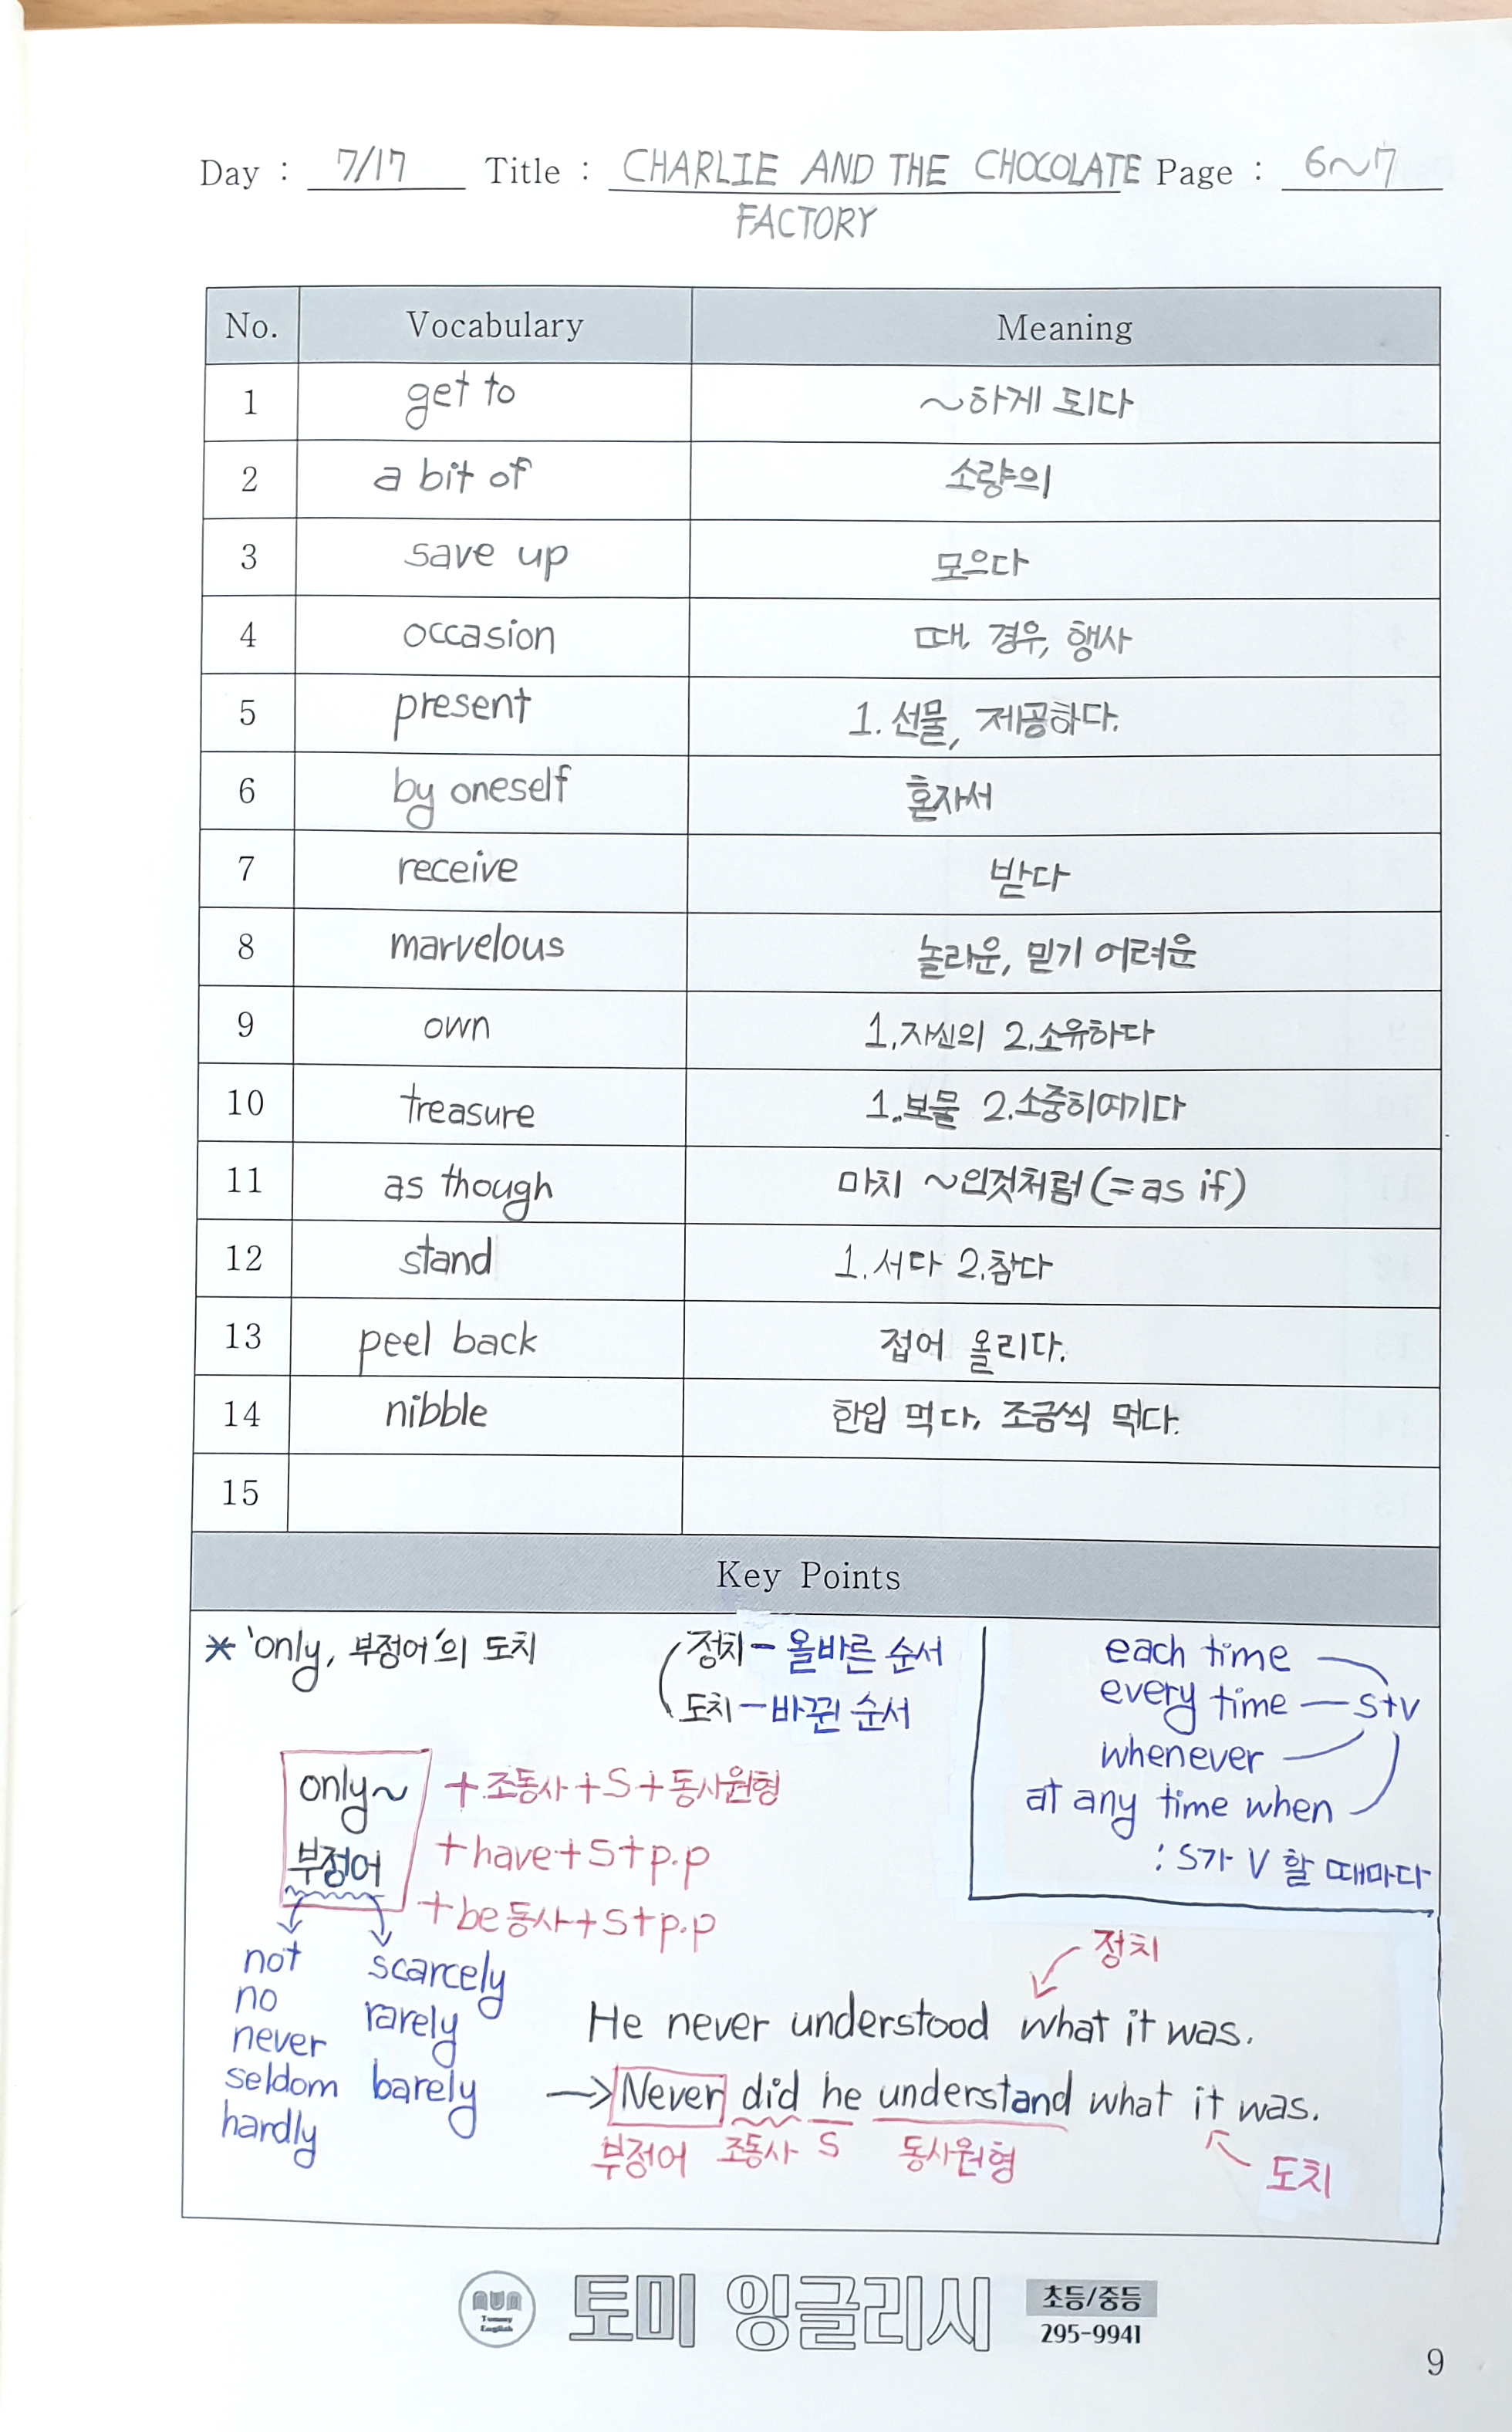 Day : 7/17 Title : CHARLIE AND THE CHOCOLATE Page : 6~7
FACTORY
No. Vocabulary Meaning
1 get to ~하게 되다
2 a bit of 소량의
3 save up 모으다
4 occasion 때, 경우, 행사
5 present 1. 선물, 제공하다.
6 by oneself 혼자서
7 receive 받다
8 marvelous 놀라운, 믿기 어려운
9 own 1.자신의 2.소유하다
10 treasure 1.보물 2.소중히여기다
11 as though 마치 ~인것처럼(=as if)
12 stand 1.서다 2.참다
13 peel back 접어 올리다.
14 nibble 한입 먹다, 조금씩 먹다.
15
Key Points
* 'only, 부정어'의 도치
정치 - 올바른 순서
도치 - 바뀐 순서
each time
every time S+V
whenever
at any time when
: S가 V 할 때마다
only~ +조동사+S+동사원형
부정어 +have+S+p.p
+be동사+S+p.p
not scarcely
no rarely
never
seldom barely
hardly
정치
He never understood what it was.
→ Never did he understand what it was.
부정어 조동사 S 동사원형 도치
Tommy
English
토미 잉글리시
초등/중등
295-9941
9